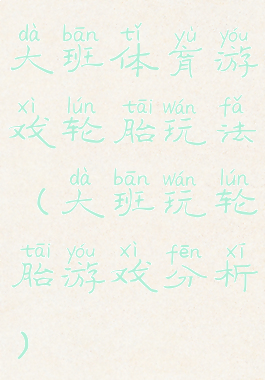 dà bān tǐ yù yóu
大班体育游
xì lún tāi wán fǎ
戏轮胎玩法
dà bān wán lún
(大班玩轮
tāi yóu xì fēn xī
胎游戏分析
)